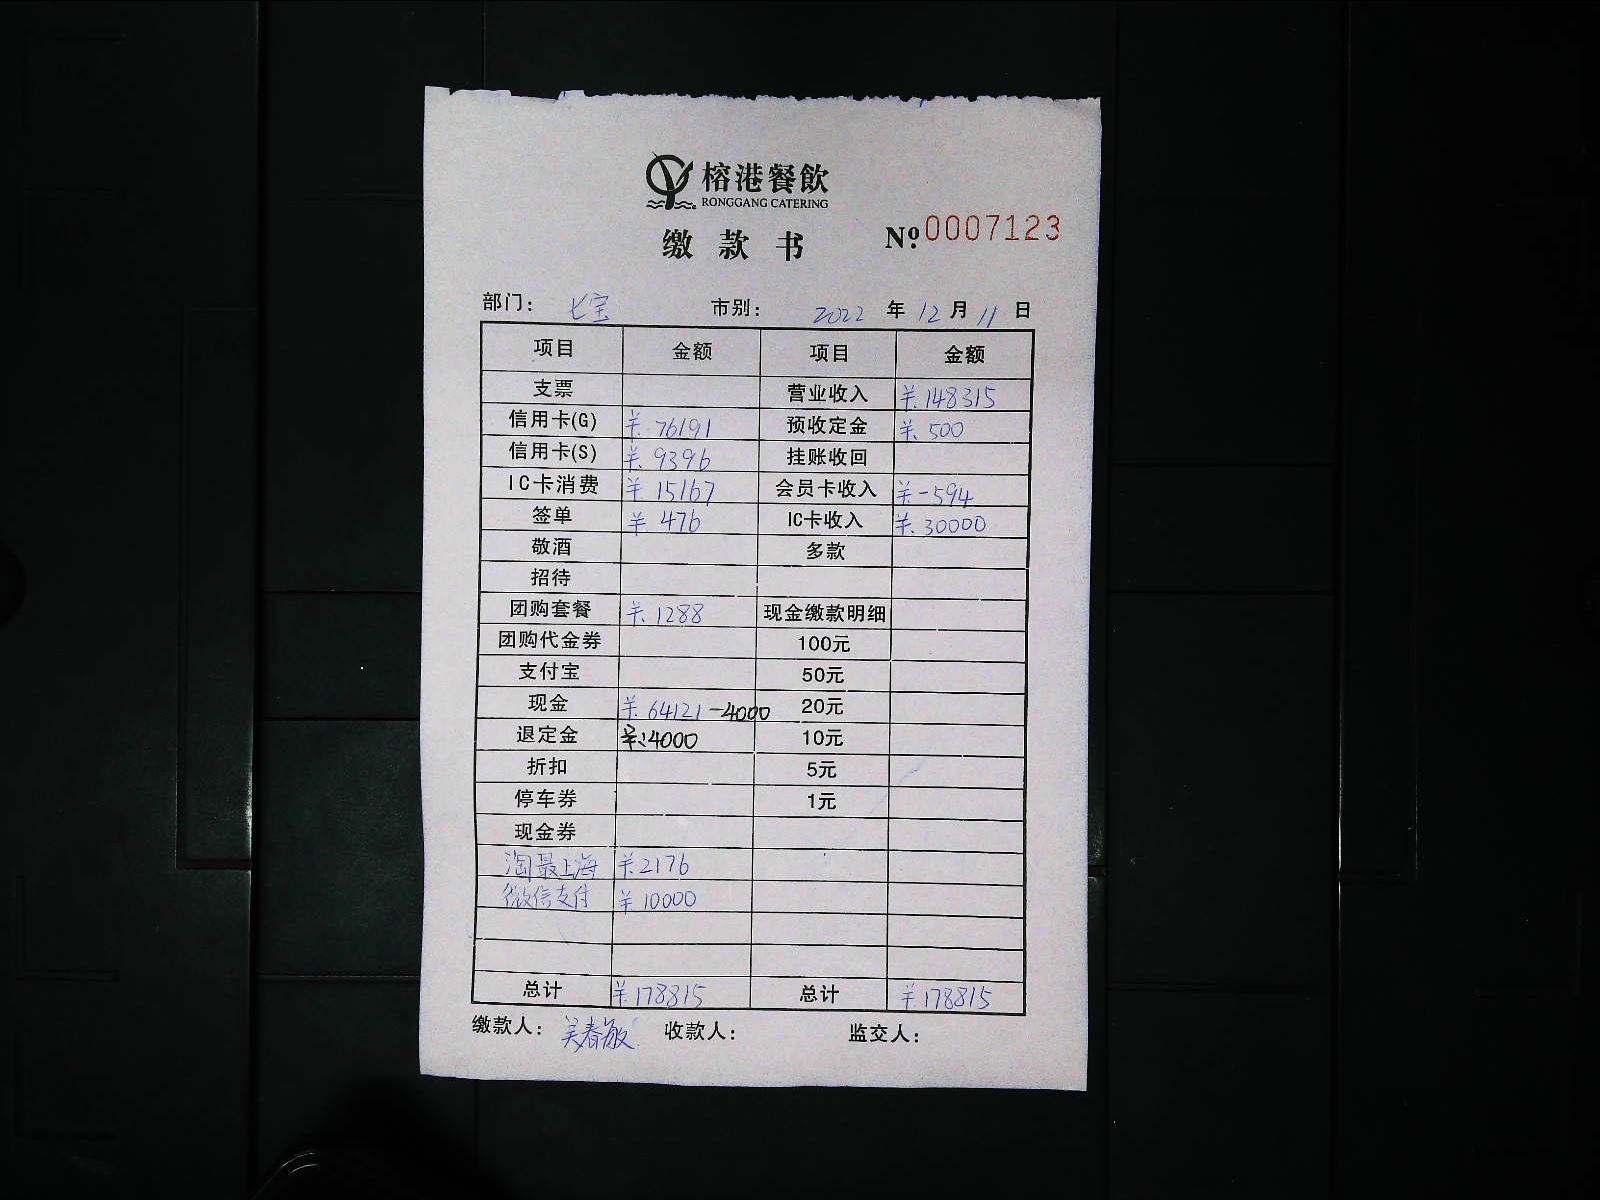 榕港餐飲
RONGGANG CATERING
缴款书 №0007123
部门： 七宝 市别： 2022 年 12 月 11 日
项目 金额 项目 金额
支票 营业收入 ¥.148315
信用卡(G) ¥.76191 预收定金 ¥.500
信用卡(S) ¥.9396 挂账收回
IC卡消费 ¥ 15167 会员卡收入 ¥-594
签单 ¥ 476 IC卡收入 ¥.30000
敬酒 多款
招待
团购套餐 ¥.1288 现金缴款明细
团购代金券 100元
支付宝 50元
现金 ¥.64121-4000 20元
退定金 ¥:4000 10元
折扣 5元
停车券 1元
现金券
淘最上海 ¥.2176
微信支付 ¥ 10000
总计 ¥.178815 总计 ¥178815
缴款人： 吴春敏 收款人： 监交人：